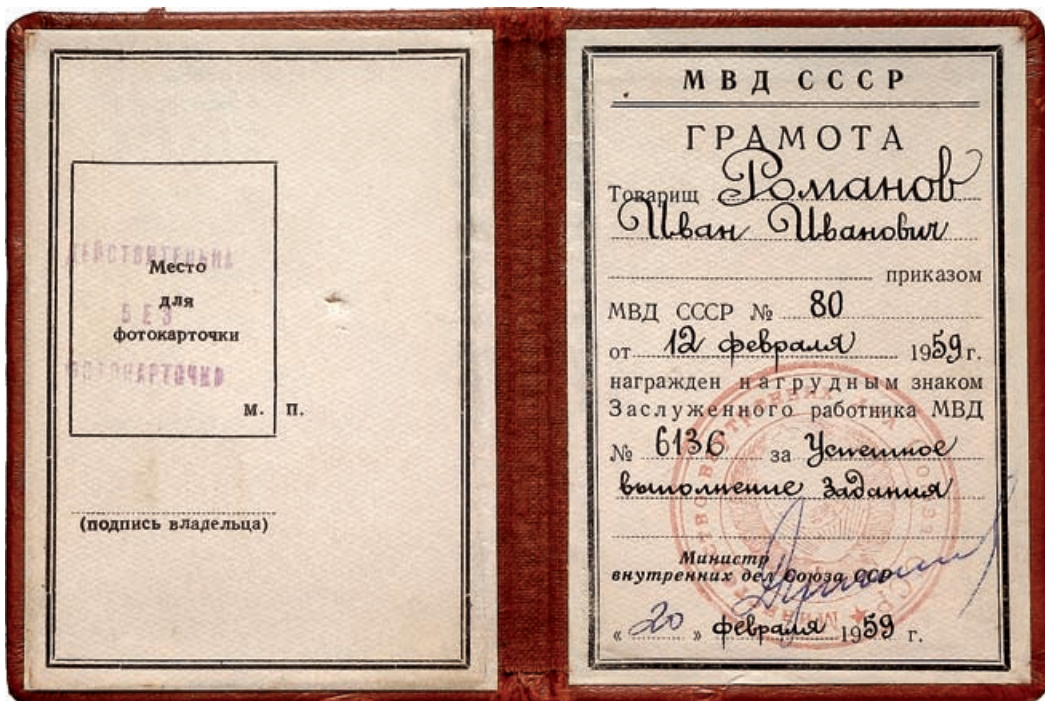 ДЕЙСТВИТЕЛЬНА
БЕЗ
ФОТОКАРТОЧКИ
Место
для
фотокарточки
М. П.
(подпись владельца)
МВД СССР
ГРАМОТА
Товарищ Романов
Иван Иванович
приказом
МВД СССР № 80
от 12 февраля 1959 г.
награжден нагрудным знаком
Заслуженного работника МВД
№ 6136 за Успешное
выполнение задания
Министр
внутренних дел Союза ССР
« 20 » февраля 1959 г.